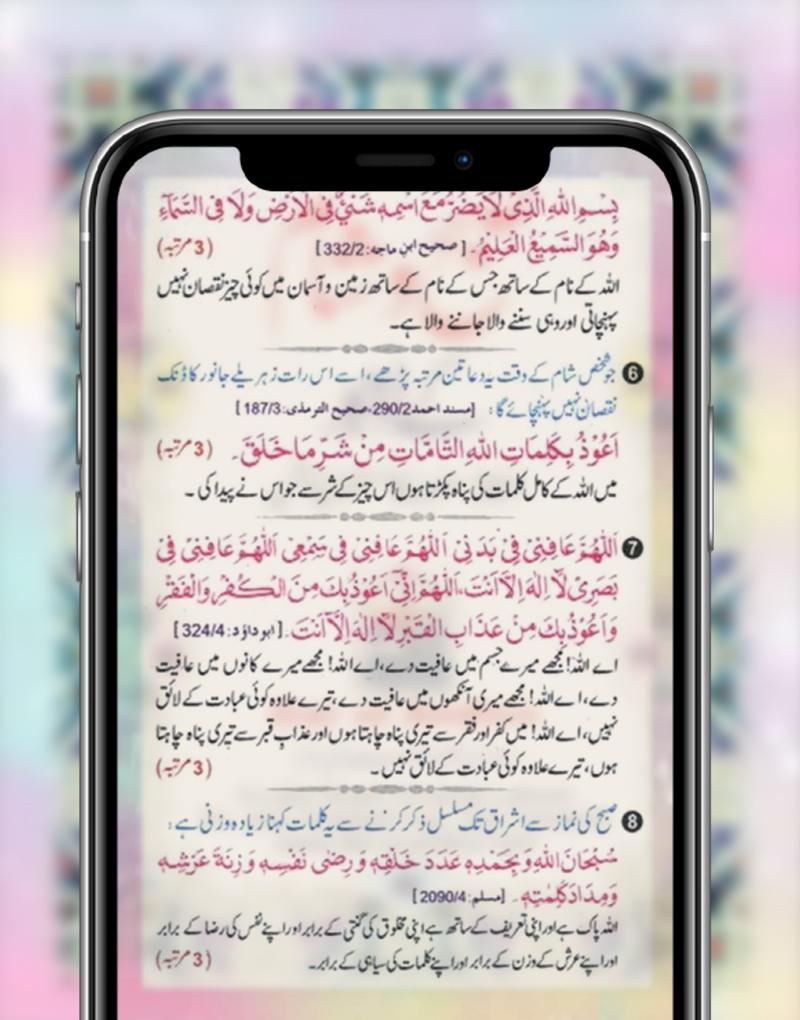 بِسْمِ اللهِ الَّذِىْ لَا يَضُرُّ مَعَ اسْمِهٖ شَىْءٌ فِى الْاَرْضِ وَلَا فِى السَّمَآءِ
وَهُوَ السَّمِيْعُ الْعَلِيْمُ۔ [صحيح ابن ماجه:332/2] (3 مرتبہ)
اللہ کے نام کے ساتھ جس کے نام کے ساتھ زمین و آسمان میں کوئی چیز نقصان نہیں
پہنچاتی اور وہی سننے والا جاننے والا ہے۔
6 جو شخص شام کے وقت یہ دعا تین مرتبہ پڑھے، اسے اس رات زہریلے جانور کا ڈنک
نقصان نہیں پہنچائے گا: [مسند احمد290/2،صحيح الترمذى:187/3]
اَعُوْذُ بِكَلِمَاتِ اللهِ التَّامَّاتِ مِنْ شَرِّ مَا خَلَقَ۔ (3 مرتبہ)
میں اللہ کے کامل کلمات کی پناہ پکڑتا ہوں اس چیز کے شر سے جو اس نے پیدا کی۔
7 اَللّٰهُمَّ عَافِنِىْ فِىْ بَدَنِىْ اَللّٰهُمَّ عَافِنِىْ فِىْ سَمْعِىْ اَللّٰهُمَّ عَافِنِىْ فِىْ
بَصَرِىْ لَآ اِلٰهَ اِلَّآ اَنْتَ، اَللّٰهُمَّ اِنِّىْ اَعُوْذُ بِكَ مِنَ الْكُفْرِ وَالْفَقْرِ
وَاَعُوْذُ بِكَ مِنْ عَذَابِ الْقَبْرِ لَآ اِلٰهَ اِلَّآ اَنْتَ۔ [ابو داؤد:324/4]
اے اللہ! مجھے میرے جسم میں عافیت دے، اے اللہ! مجھے میرے کانوں میں عافیت
دے، اے اللہ! مجھے میری آنکھوں میں عافیت دے، تیرے علاوہ کوئی عبادت کے لائق
نہیں، اے اللہ! میں کفر اور فقر سے تیری پناہ چاہتا ہوں اور عذاب قبر سے تیری پناہ چاہتا
ہوں، تیرے علاوہ کوئی عبادت کے لائق نہیں۔ (3 مرتبہ)
8 صبح کی نماز سے اشراق تک مسلسل ذکر کرنے سے یہ کلمات کہنا زیادہ وزنی ہے:
سُبْحَانَ اللهِ وَبِحَمْدِهٖ عَدَدَ خَلْقِهٖ وَرِضٰى نَفْسِهٖ وَزِنَةَ عَرْشِهٖ
وَمِدَادَ كَلِمٰتِهٖ۔ [مسلم:2090/4]
اللہ پاک ہے اور اپنی تعریف کے ساتھ ہے اپنی مخلوق کی گنتی کے برابر اور اپنے نفس کی رضا کے برابر
اور اپنے عرش کے وزن کے برابر اور اپنے کلمات کی سیاہی کے برابر۔ (3 مرتبہ)